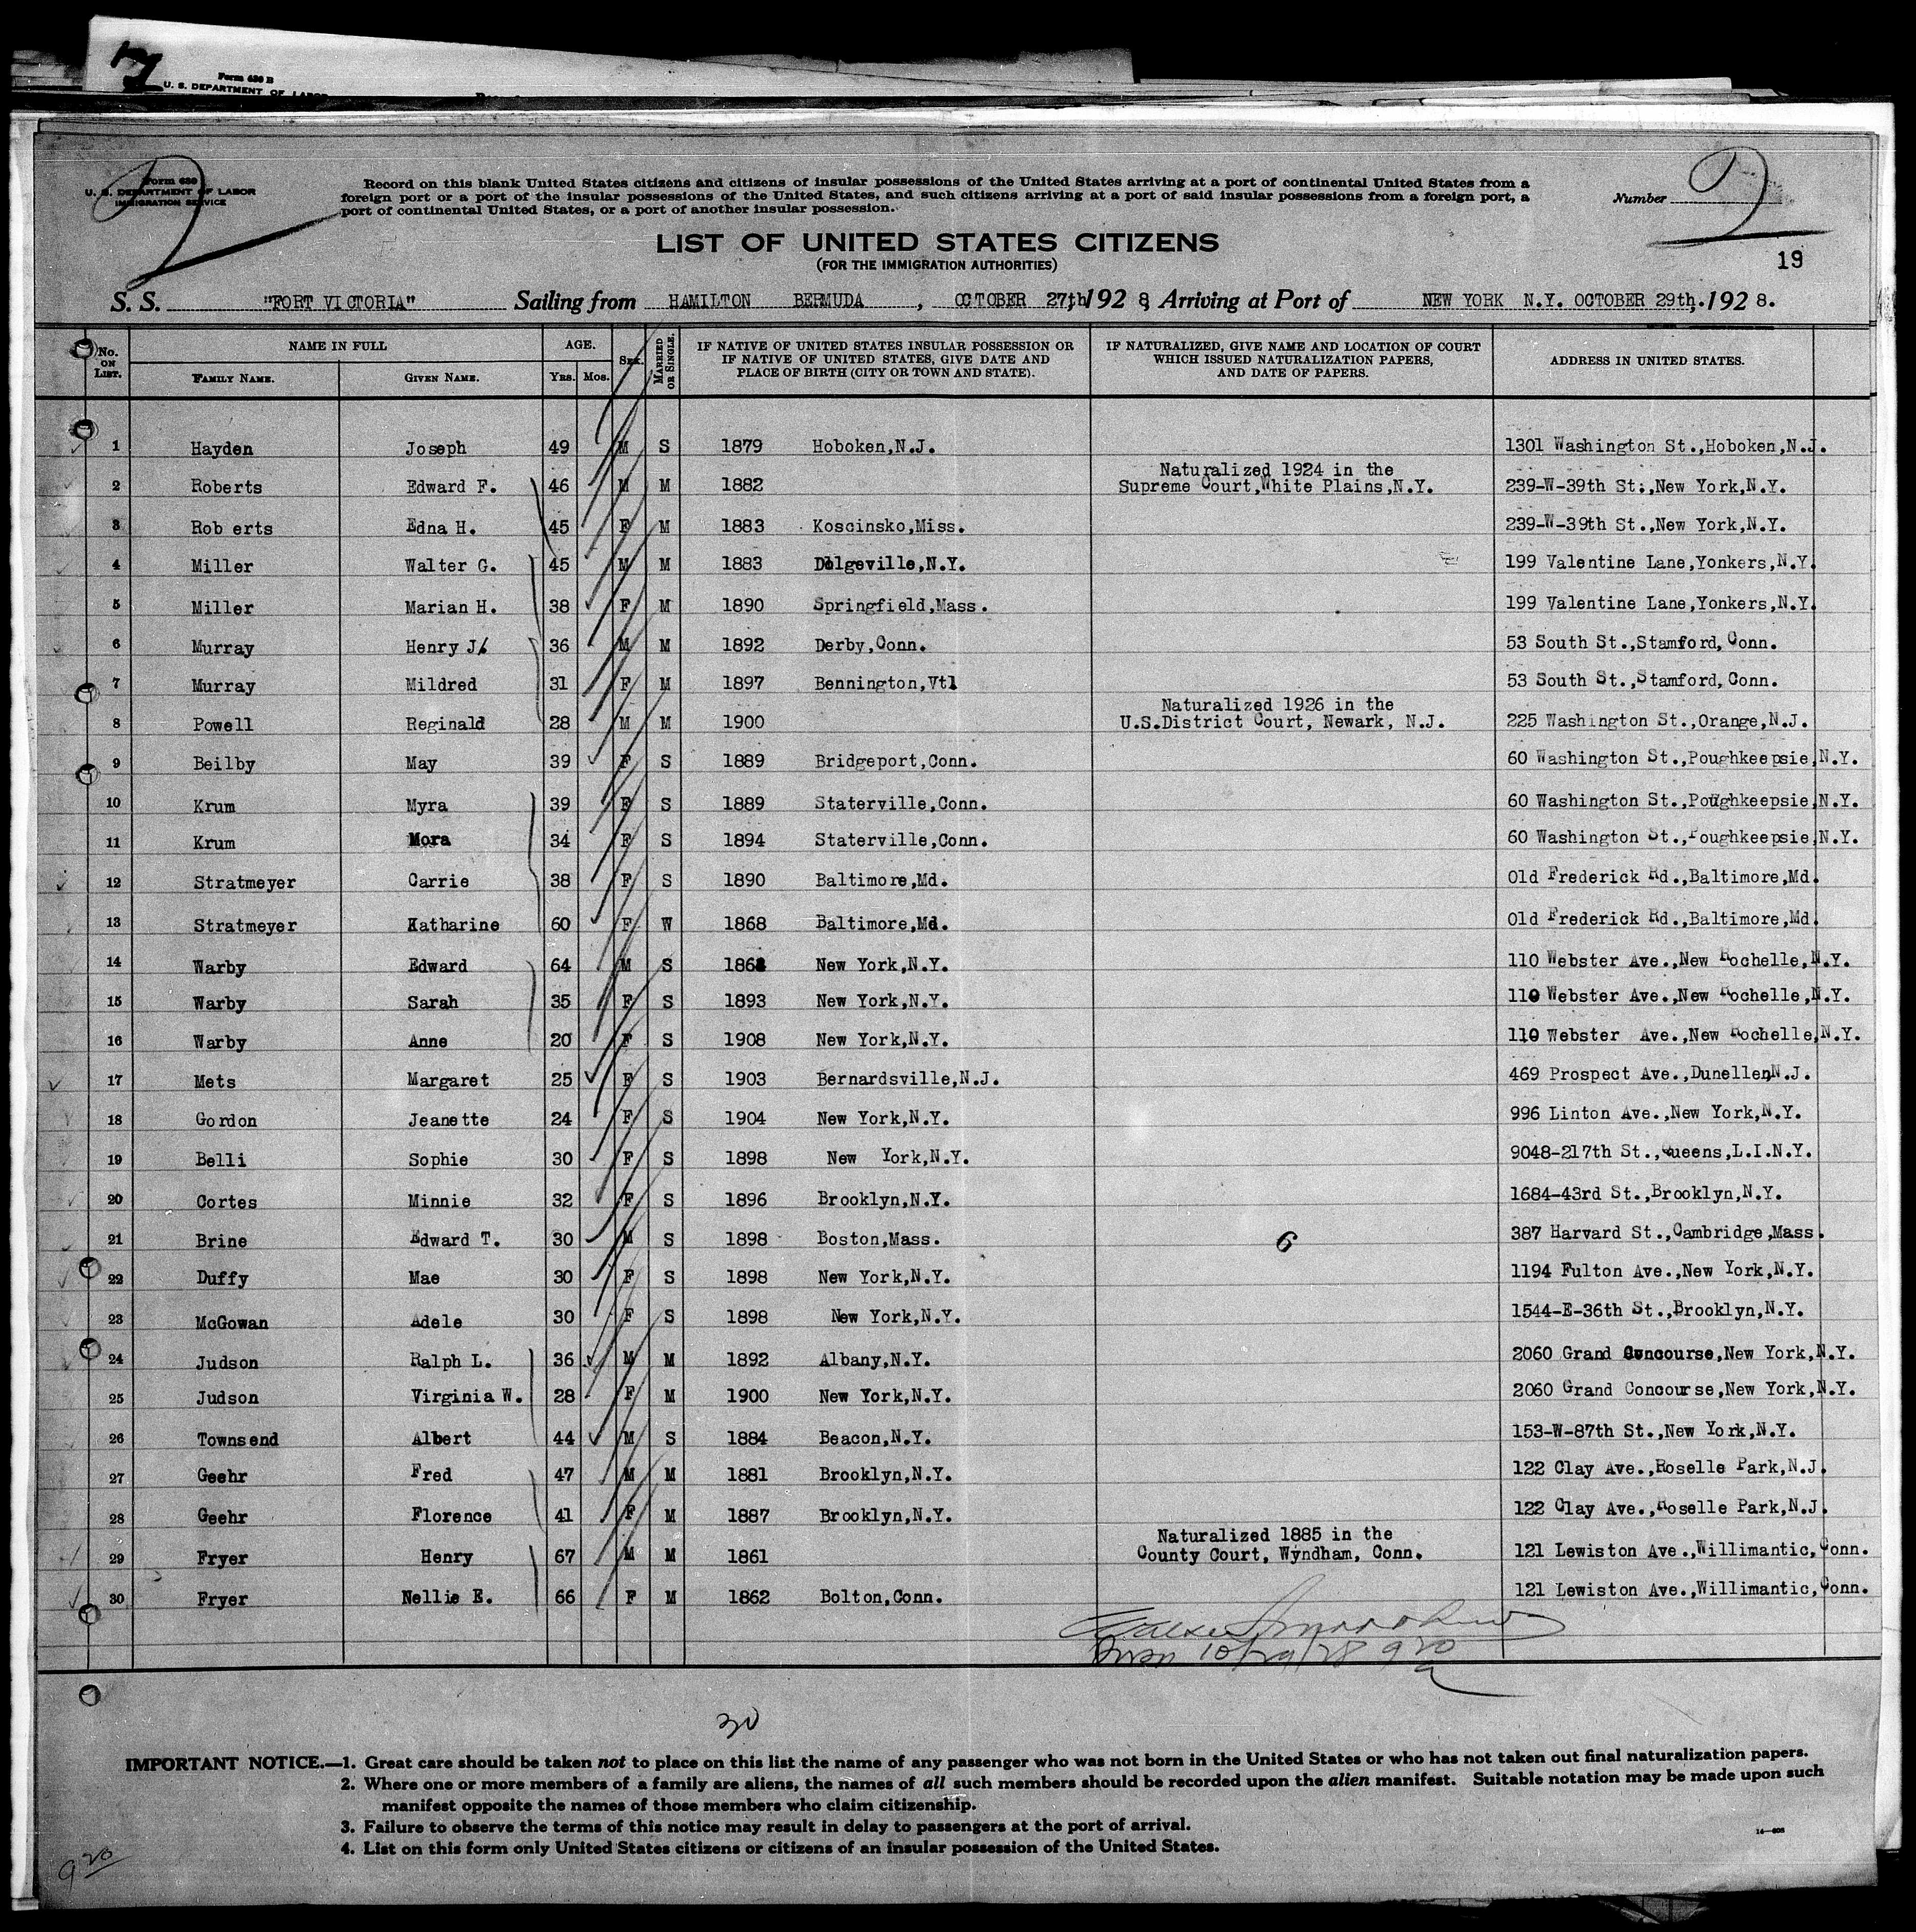 7
Form 630 B
U. S. DEPARTMENT OF LABOR
2
Form 630
U. S. DEPARTMENT OF LABOR
IMMIGRATION SERVICE
Record on this blank United States citizens and citizens of insular possessions of the United States arriving at a port of continental United States from a
foreign port or a port of the insular possessions of the United States, and such citizens arriving at a port of said insular possessions from a foreign port, a
port of continental United States, or a port of another insular possession.
Number 2
LIST OF UNITED STATES CITIZENS
(FOR THE IMMIGRATION AUTHORITIES)
19
S. S. "FORT VICTORIA" Sailing from HAMILTON BERMUDA, OCTOBER 27th, 1928, Arriving at Port of NEW YORK N.Y. OCTOBER 29th, 1928.
No. ON LIST. NAME IN FULL FAMILY NAME. GIVEN NAME. AGE. YRS. MOS. SEX. MARRIED OR SINGLE. IF NATIVE OF UNITED STATES INSULAR POSSESSION OR IF NATIVE OF UNITED STATES, GIVE DATE AND PLACE OF BIRTH (CITY OR TOWN AND STATE). IF NATURALIZED, GIVE NAME AND LOCATION OF COURT WHICH ISSUED NATURALIZATION PAPERS, AND DATE OF PAPERS. ADDRESS IN UNITED STATES.
1 Hayden Joseph 49 M S 1879 Hoboken,N.J. 1301 Washington St.,Hoboken,N.J.
2 Roberts Edward F. 46 M M 1882 Naturalized 1924 in the Supreme Court,White Plains,N.Y. 239-W-39th St.,New York,N.Y.
3 Rob erts Edna H. 45 F M 1883 Koscinsko,Miss. 239-W-39th St.,New York,N.Y.
4 Miller Walter G. 45 M M 1883 Dolgeville,N.Y. 199 Valentine Lane,Yonkers,N.Y.
5 Miller Marian H. 38 F M 1890 Springfield,Mass. 199 Valentine Lane,Yonkers,N.Y.
6 Murray Henry J. 36 M M 1892 Derby,Conn. 53 South St.,Stamford,Conn.
7 Murray Mildred 31 F M 1897 Bennington,Vtl 53 South St.,Stamford,Conn.
8 Powell Reginald 28 M M 1900 Naturalized 1926 in the U.S.District Court, Newark, N.J. 225 Washington St.,Orange,N.J.
9 Beilby May 39 F S 1889 Bridgeport,Conn. 60 Washington St.,Poughkeepsie,N.Y.
10 Krum Myra 39 F S 1889 Staterville,Conn. 60 Washington St.,Poughkeepsie,N.Y.
11 Krum Mora 34 F S 1894 Staterville,Conn. 60 Washington St.,Poughkeepsie,N.Y.
12 Stratmeyer Carrie 38 F S 1890 Baltimore,Md. Old Frederick Rd.,Baltimore,Md.
13 Stratmeyer Katharine 60 F W 1868 Baltimore,Md. Old Frederick Rd.,Baltimore,Md.
14 Warby Edward 64 M S New York,N.Y. 110 Webster Ave.,New Rochelle,N.Y.
15 Warby Sarah 35 F S 1893 New York,N.Y. 110 Webster Ave.,New Rochelle,N.Y.
16 Warby Anne 20 F S 1908 New York,N.Y. 110 Webster Ave.,New Rochelle,N.Y.
17 Mets Margaret 25 F S 1903 Bernardsville,N.J. 469 Prospect Ave.,Dunellen,N.J.
18 Gordon Jeanette 24 F S 1904 New York,N.Y. 996 Linton Ave.,New York,N.Y.
19 Belli Sophie 30 F S 1898 New York,N.Y. 9048-217th St.,Queens,L.I.N.Y.
20 Cortes Minnie 32 F S 1896 Brooklyn,N.Y. 1684-43rd St.,Brooklyn,N.Y.
21 Brine Edward T. 30 M S 1898 Boston,Mass. 6 387 Harvard St.,Cambridge,Mass.
22 Duffy Mae 30 F S 1898 New York,N.Y. 1194 Fulton Ave.,New York,N.Y.
23 McGowan Adele 30 F S 1898 New York,N.Y. 1544-E-36th St.,Brooklyn,N.Y.
24 Judson Ralph L. 36 M M 1892 Albany,N.Y. 2060 Grand Concourse,New York,N.Y.
25 Judson Virginia W. 28 F M 1900 New York,N.Y. 2060 Grand Concourse,New York,N.Y.
26 Townsend Albert 44 M S 1884 Beacon,N.Y. 153-W-87th St.,New York,N.Y.
27 Geehr Fred 47 M M 1881 Brooklyn,N.Y. 122 Clay Ave.,Roselle Park,N.J.
28 Geehr Florence 41 F M 1887 Brooklyn,N.Y. 122 Clay Ave.,Roselle Park,N.J.
29 Fryer Henry 67 M M 1861 Naturalized 1885 in the County Court, Wyndham, Conn. 121 Lewiston Ave.,Willimantic,Conn.
30 Fryer Nellie E. 66 F M 1862 Bolton,Conn. 121 Lewiston Ave.,Willimantic,Conn.
10/29/28 920
30
IMPORTANT NOTICE.—1. Great care should be taken not to place on this list the name of any passenger who was not born in the United States or who has not taken out final naturalization papers.
2. Where one or more members of a family are aliens, the names of all such members should be recorded upon the alien manifest. Suitable notation may be made upon such
manifest opposite the names of those members who claim citizenship.
3. Failure to observe the terms of this notice may result in delay to passengers at the port of arrival.
4. List on this form only United States citizens or citizens of an insular possession of the United States.
920